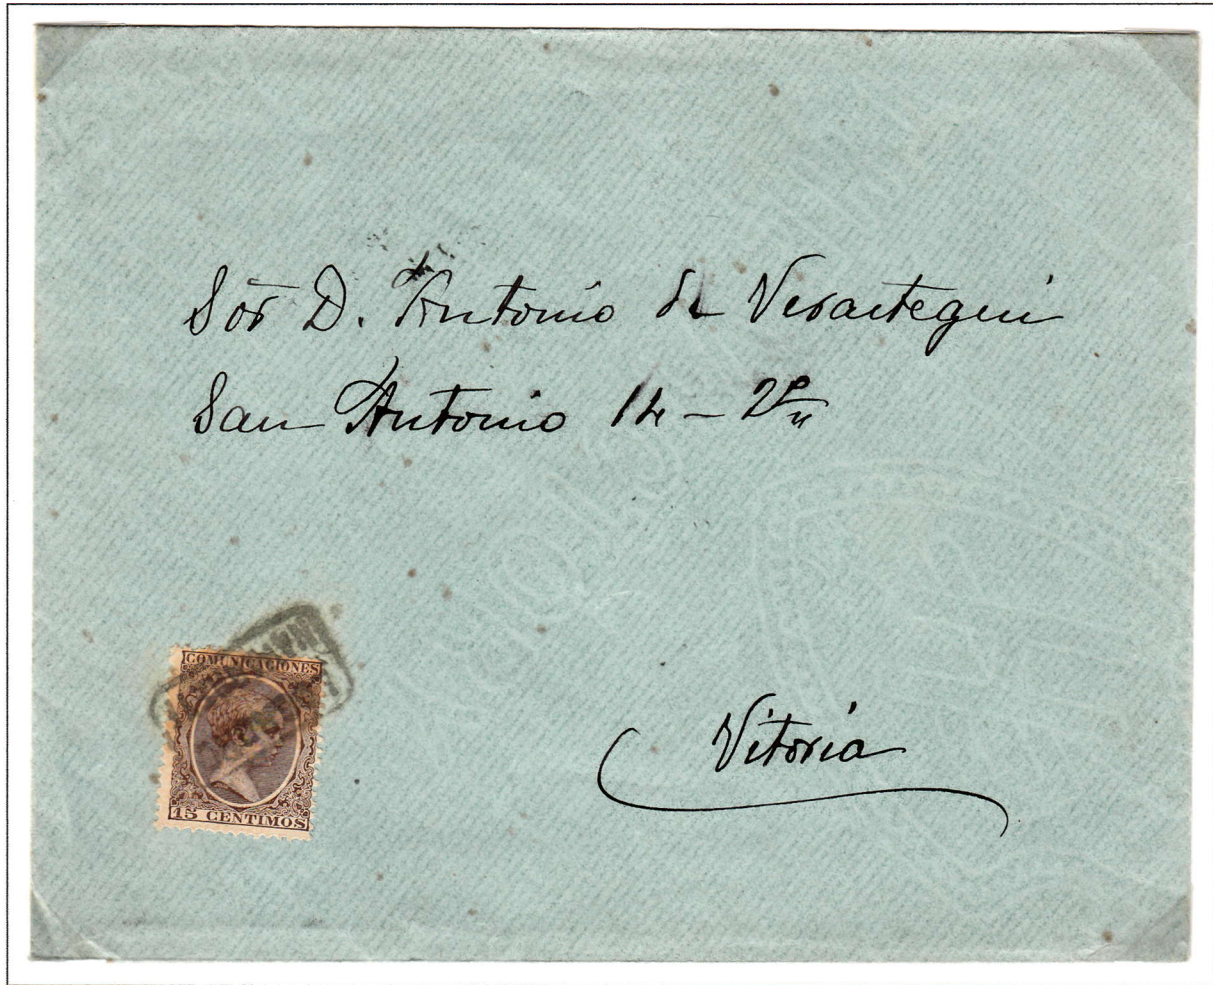 Sor D. Antonio de Verastegui
San Antonio 14 - 2º
Vitoria
COMUNICACIONES
15 CENTIMOS